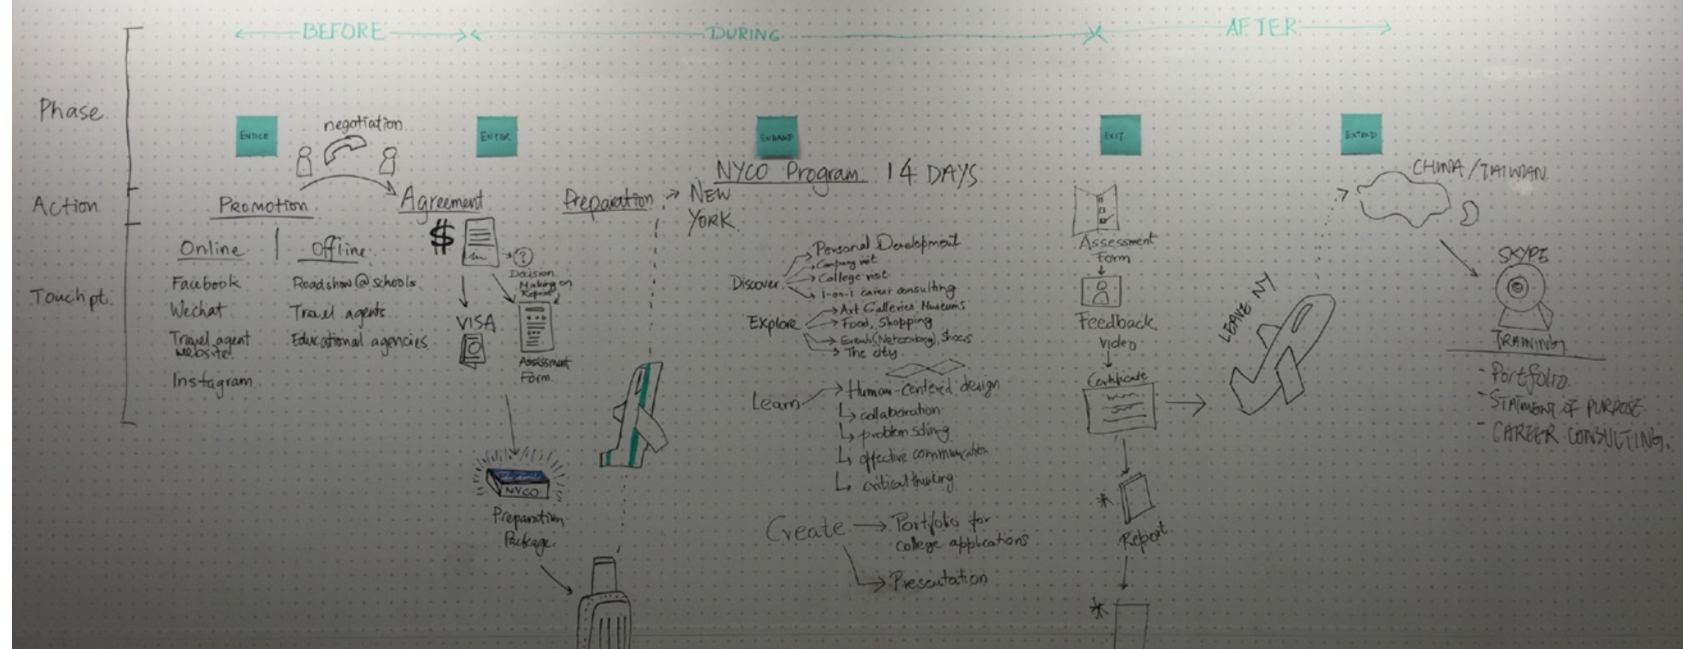 BEFORE
DURING
AFTER
Phase
Action
Touch pt.
ENTICE
ENTER
ENGAGE
EXIT
EXTEND
negotiation
PROMOTION
Agreement
Online
Offline
Facebook
Wechat
Travel agent
website
Instagram
Roadshow @ schools
Travel agents
Educational agencies
$
?
Decision
Making on
VISA
Assessment
Form
NYCO
Preparation
Package
Preparation
NEW
YORK
NYCO Program 14 DAYS
Discover
Personal Development
Company visit
College visit
1-on-1 career consulting
Explore
Art Galleries, Museums
Food, Shopping
The city
Learn
Human-centered design
collaboration
problem solving
effective communication
critical thinking
Create
Portfolio for
college applications
Presentation
Assessment
Form
Feedback
Video
Certificate
Report
LEAVE NY
CHINA / TAIWAN
SKYPE
TRAINING
- Portfolio
- STATMENT OF PURPOSE
- CAREER CONSULTING.